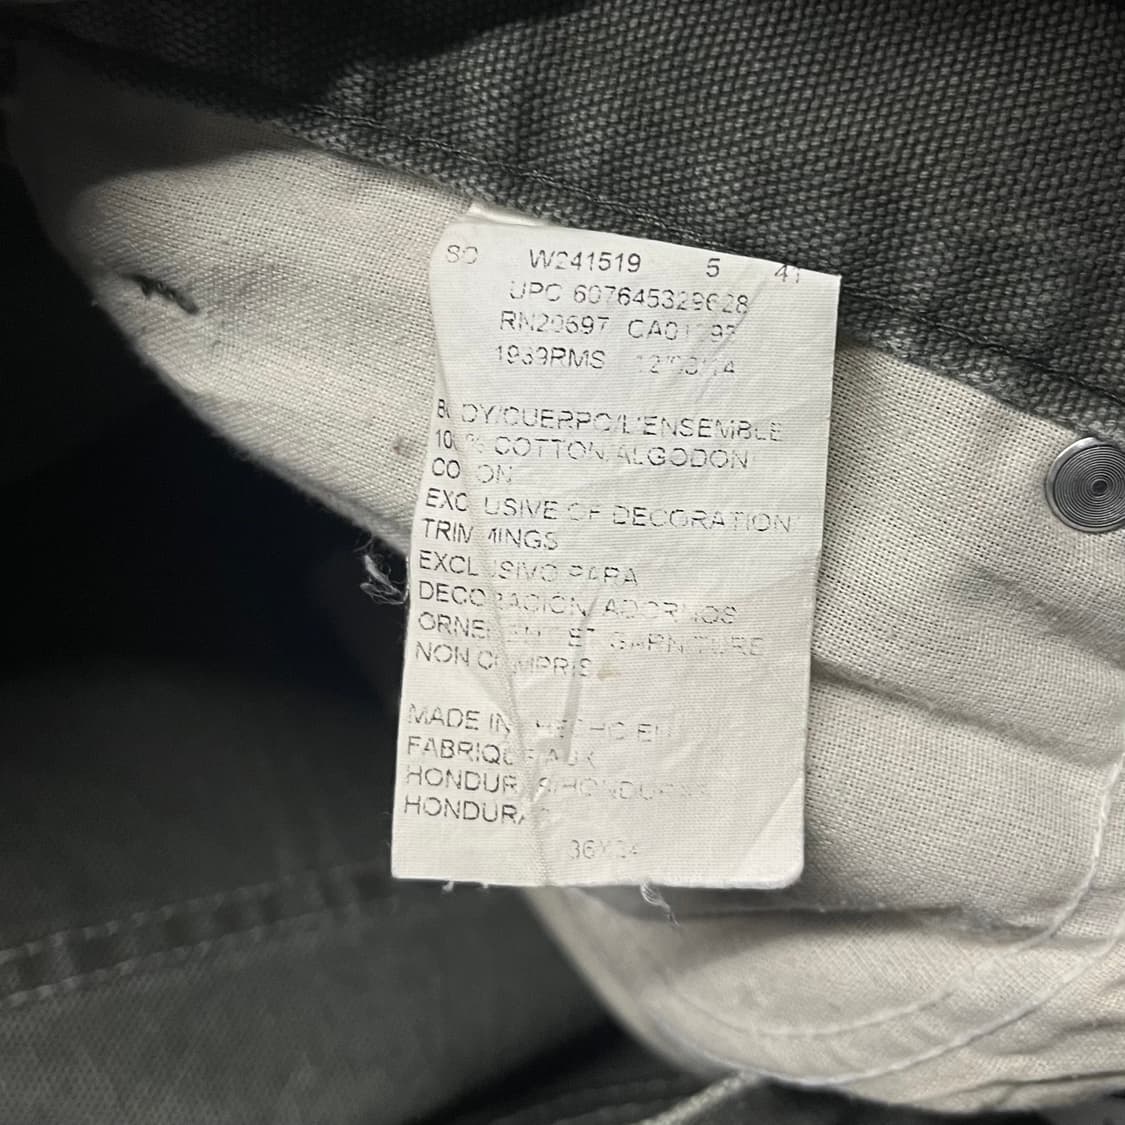 W241519 5
UPC
1939RMS
BODY/CUERPO/L'ENSEMBLE
100% COTTON/ALGODON
COTON
EXCLUSIVE OF DECORATION
TRIMMINGS
EXCLUSIVO PARA
DECORACION/ADORNOS
ORNEMENT ET GARNITURE
NON COMPRIS
MADE IN/HECHO EN/
FABRIQUE AUX
HONDURAS/HONDURAS
HONDURAS